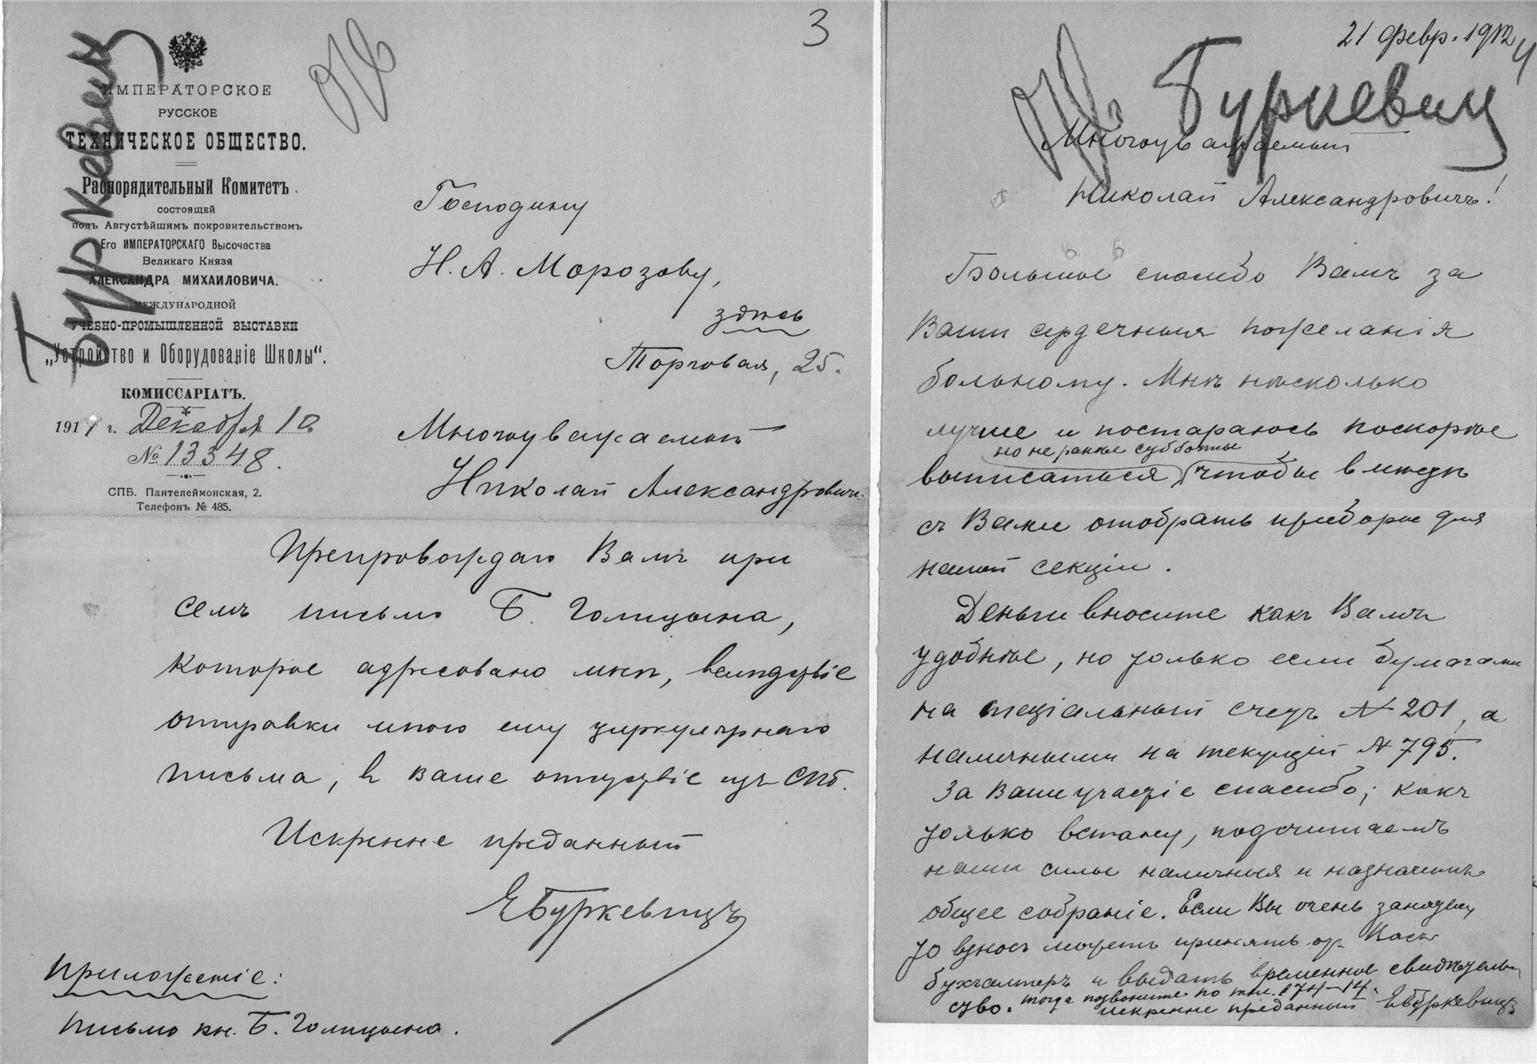 3
ИМПЕРАТОРСКОЕ
РУССКОЕ
ТЕХНИЧЕСКОЕ ОБЩЕСТВО.
Распорядительный Комитетъ
состоящей
подъ Августѣйшимъ покровительствомъ
Его ИМПЕРАТОРСКАГО Высочества
Великаго Князя
АЛЕКСАНДРА МИХАИЛОВИЧА.
МЕЖДУНАРОДНОЙ
УЧЕБНО-ПРОМЫШЛЕННОЙ ВЫСТАВКИ
„Устройство и Оборудованіе Школы“.
КОМИССАРІАТЪ.
1911 г. Декабря 10
№ 13348.
СПБ. Пантелеймонская, 2.
Телефонъ № 485.
Буркевич
Господину
Н. А. Морозову,
здѣсь
Торговая, 25.
Многоуважаемый
Николай Александровичъ.
Препровождаю Вамъ при
семъ письмо Б. Голицына,
которое адресовано мнѣ, вслѣдствіе
отправки мною ему циркулярнаго
письма, в Ваше отсутствіе изъ СПб.
Искренне преданный
ЕБуркевичъ
Приложеніе:
письмо кн. Б. Голицына.
21 февр. 1912
4
Буркевич
Многоуважаемый
Николай Александровичъ!
Большое спасибо Вамъ за
Ваши сердечныя пожеланія
больному. Мнѣ нѣсколько
лучше и постараюсь поскорѣе
но не ранѣе субботы
выписаться, чтобы вмѣстѣ
съ Вами отобрать приборы для
нашей секціи.
Деньги вносите какъ Вамъ
удобнѣе, но только если бумагами
на спеціальный счетъ № 201, а
наличными на текущій № 795.
За Ваше участіе спасибо; какъ
только встану, подсчитаемъ
наши силы наличныя и назначимъ
общее собраніе. Если Вы очень заняты
то взносъ можетъ принять отъ Васъ
бухгалтеръ и выдать временное свидѣтель
ство. Тогда позвоните по тел. 174-14.
искренне преданный ЕБуркевичъ